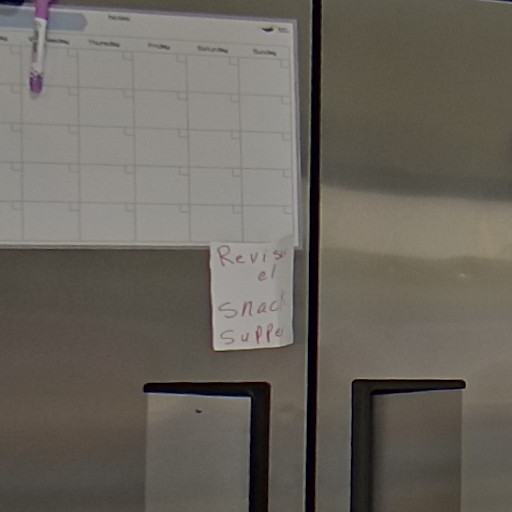 Notes
Thursday Friday Saturday Sunday
Revis
el
Snack
Suppe